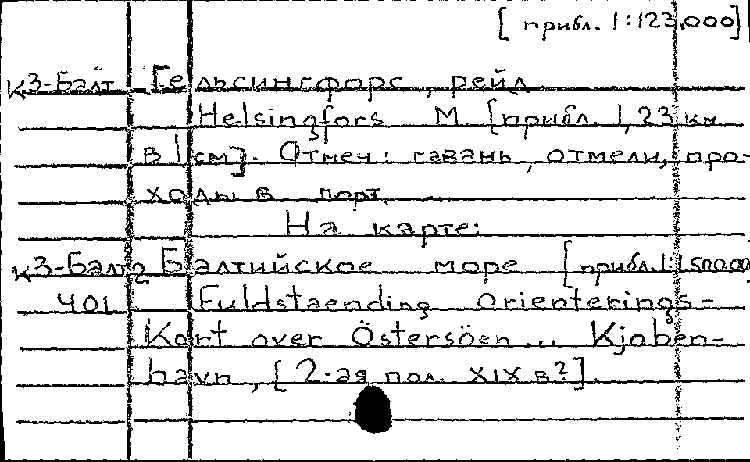 [прибл. 1:123.000]
К3-Балт Гельсингфорс, рейд
Helsingfors M. [прибл. 1,23 км
в 1 см]. Отмеч: гавань, отмели, про-
ходы в порт.
На карте:
К3-Балт Балтийское море [прибл. 1:1500000
401 Fuldstaending Orienterings-
Kort over Östersöen... Kjoben-
havn, [2-ая пол. XIX в?].